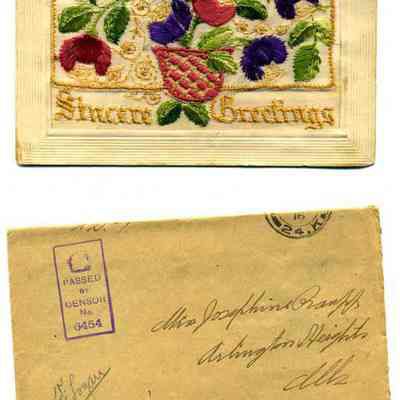 Sincere Greetings
16
24.K
PASSED
BY
CENSOR
No.
6454
Miss Josephine
Arlington Heights
Ills